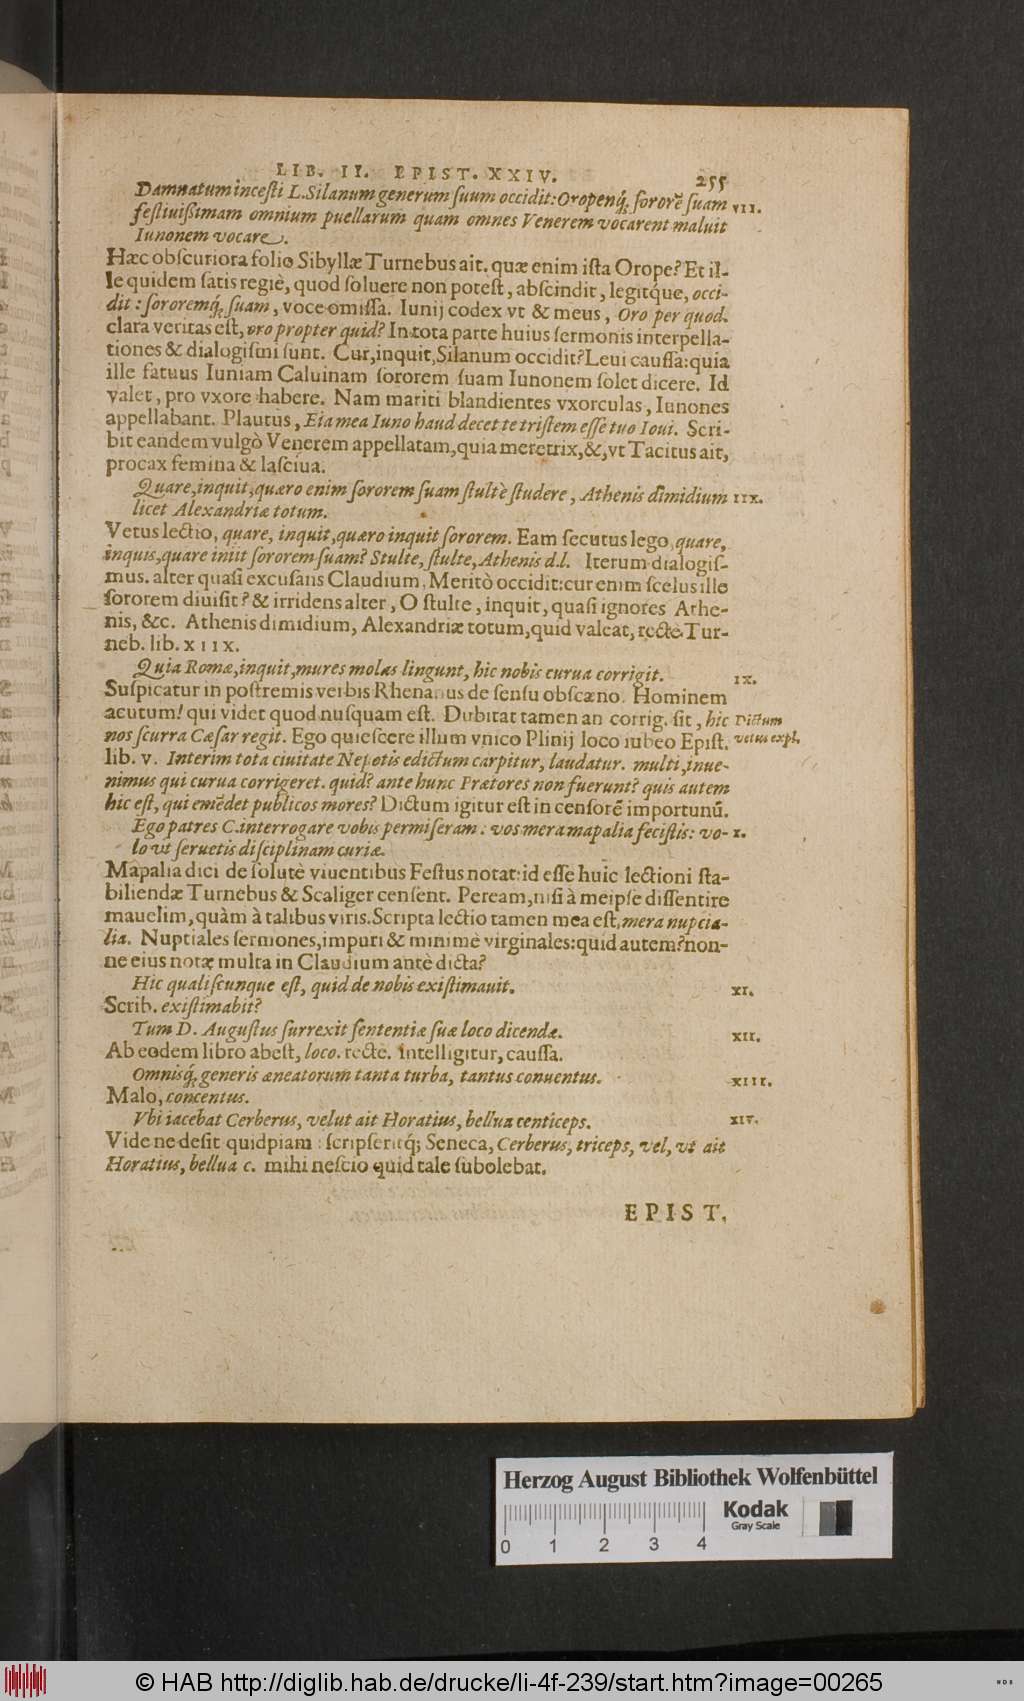 LIB. II. EPIST. XXIV. 255
Damnatum incesti L. Silanum generum suum occidit: Oropenq́; sororẽ suam VII.
festiuißimam omnium puellarum quam omnes Venerem vocarent maluit
Iunonem vocare.
Hæc obscuriora folio Sibyllæ Turnebus ait. quæ enim ista Orope? Et il-
le quidem satis regiè, quod soluere non potest, abscindit, legitq́ue, occi-
dit: sororemq́; suam, voce omissa. Iunij codex vt & meus, Oro per quod.
clara veritas est, oro propter quid? In tota parte huius sermonis interpella-
tiones & dialogismi sunt. Cur, inquit, Silanum occidit? Leui caussa: quia
ille fatuus Iuniam Caluinam sororem suam Iunonem solet dicere. Id
valet, pro vxore habere. Nam mariti blandientes vxorculas, Iunones
appellabant. Plautus, Eia mea Iuno haud decet te tristem esse tuo Ioui. Scri-
bit eandem vulgò Venerem appellatam, quia meretrix, &, vt Tacitus ait,
procax femina & lasciua.
Quare, inquit, quæro enim sororem suam stultè studere, Athenis dimidium IIX.
licet Alexandriæ totum.
Vetus lectio, quare, inquit, quæro inquit sororem. Eam secutus lego, quare,
inquis, quare iniit sororem suam? Stulte, stulte, Athenis d.l. Iterum dialogis-
mus. alter quasi excusans Claudium, Meritò occidit: cur enim scelus ille
sororem diuisit? & irridens alter, O stulte, inquit, quasi ignores Athe-
nis, &c. Athenis dimidium, Alexandriæ totum, quid valeat, rectè Tur-
neb. lib. XIIX.
Quia Romæ, inquit, mures molas lingunt, hic nobis curua corrigit. IX.
Suspicatur in postremis verbis Rhenanus de sensu obscæno. Hominem
acutum! qui videt quod nusquam est. Dubitat tamen an corrig. sit, hic Dictum
nos scurra Cæsar regit. Ego quiescere illum vnico Plinij loco iubeo Epist. vetus expl.
lib. v. Interim tota ciuitate Nepotis edictum carpitur, laudatur. multi, inue-
nimus qui curua corrigeret. quid? ante hunc Prætores non fuerunt? quis autem
hic est, qui emẽdet publicos mores? Dictum igitur est in censorẽ importunũ.
Ego patres C. interrogare vobis permiseram: vos mera mapalia fecistis: vo- X.
lo vt seruetis disciplinam curiæ.
Mapalia dici de solutè viuentibus Festus notat: id esse huic lectioni sta-
biliendæ Turnebus & Scaliger censent. Peream, nisi à meipse dissentire
mauelim, quàm à talibus viris. Scripta lectio tamen mea est, mera nupcia-
lia. Nuptiales sermones, impuri & minimè virginales: quid autem? non-
ne eius notæ multa in Claudium antè dicta?
Hic qualiscunque est, quid de nobis existimauit. XI.
Scrib. existimabit?
Tum D. Augustus surrexit sententiæ suæ loco dicendæ. XII.
Ab eodem libro abest, loco. rectè. intelligitur, caussa.
Omnisq́; generis æneatorum tanta turba, tantus conuentus. XIII.
Malo, concentus.
Vbi iacebat Cerberus, velut ait Horatius, bellua centiceps. XIV.
Vide ne desit quidpiam: scripseritq́; Seneca, Cerberus, triceps, vel, vt ait
Horatius, bellua c. mihi nescio quid tale subolebat.
EPIST.
Herzog August Bibliothek Wolfenbüttel
Kodak
Gray Scale
0 1 2 3 4
© HAB http://diglib.hab.de/drucke/li-4f-239/start.htm?image=00265